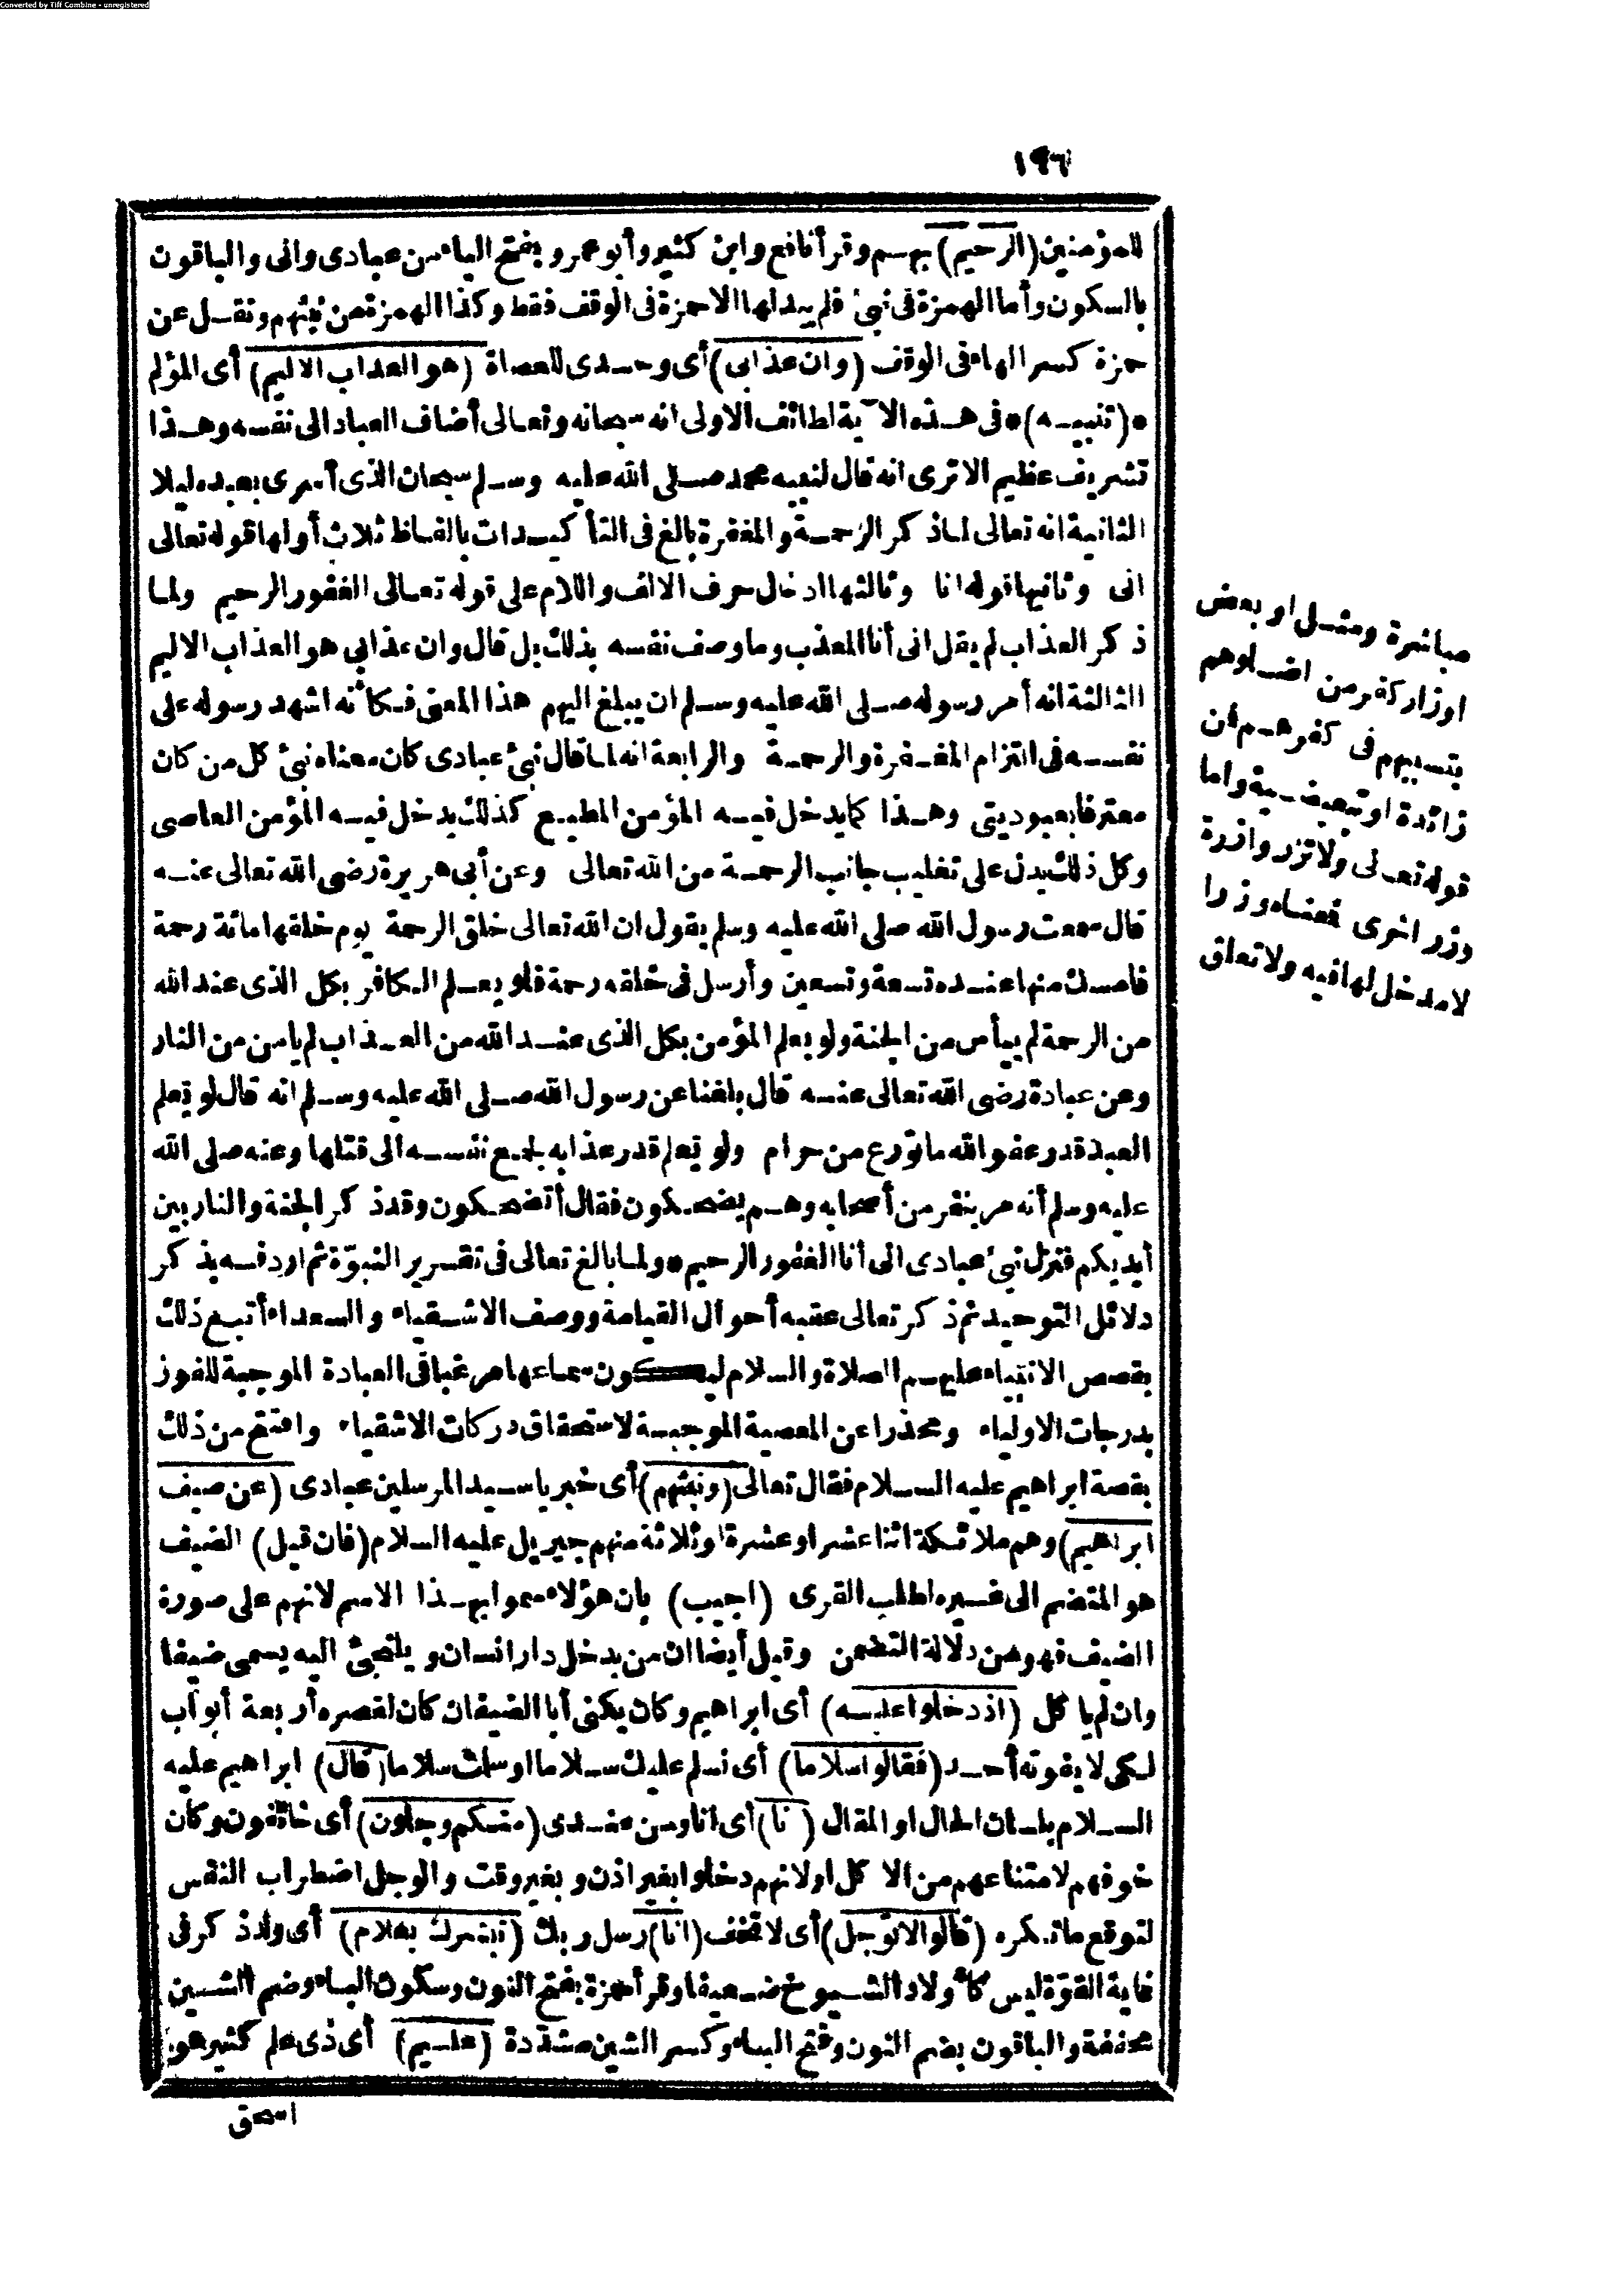 Converted by Tiff Combine - unregistered
١٩٦
للمؤمنين (الرحيم) بهم وقرأ نافع وابن كثير وأبو عمرو بفتح الياء من عبادى وانى والباقون
بالسكون وأما الهمزة فى نبئ فلم يبدلها الا حمزة فى الوقف فقط وكذا الهمزة من نبئهم ونقل عن
حمزة كسر الهاء فى الوقف (وان عذابى) أى وحدى للعصاة (هو العذاب الاليم) أى المؤلم
*(تنبيه)* فى هذه الآية لطائف الاولى انه سبحانه وتعالى أضاف العباد الى نفسه وهذا
تشريف عظيم الا ترى انه قال لنبيه محمد صلى الله عليه وسلم سبحان الذى أسرى بعبده ليلا
الثانية انه تعالى لما ذكر الرحمة والمغفرة بالغ فى التأكيدات بالفاظ ثلاث أولها قوله تعالى
انى وثانيها قوله انا وثالثها ادخال حرف الالف واللام على قوله تعالى الغفور الرحيم ولما
ذكر العذاب لم يقل انى أنا المعذب وما وصف نفسه بذلك بل قال وان عذابى هو العذاب الاليم
الثالثة انه أمر رسوله صلى الله عليه وسلم ان يبلغ اليهم هذا المعنى فكأنه اشهد رسوله على
نفسه فى التزام المغفرة والرحمة والرابعة انه لما قال نبئ عبادى كان معناه نبئ كل من كان
معترفا بعبوديتى وهذا كما يدخل فيه المؤمن المطيع كذلك يدخل فيه المؤمن العاصى
وكل ذلك يدل على تغليب جانب الرحمة من الله تعالى وعن أبى هريرة رضى الله تعالى عنه
قال سمعت رسول الله صلى الله عليه وسلم يقول ان الله تعالى خلق الرحمة يوم خلقها مائة رحمة
فامسك منها عنده تسعة وتسعين وأرسل فى خلقه رحمة فلو يعلم الكافر بكل الذى عند الله
من الرحمة لم ييأس من الجنة ولو يعلم المؤمن بكل الذى عند الله من العذاب لم يامن من النار
وعن عبادة رضى الله تعالى عنه قال بلغنا عن رسول الله صلى الله عليه وسلم انه قال لو تعلم
العبد قدر عفو الله ما تورع من حرام ولو تعلم قدر عذابه لجمع نفسه الى قتلها وعنه صلى الله
عليه وسلم أنه مر بنفر من أصحابه وهم يضحكون فقال أتضحكون وقد ذكر الجنة والنار بين
أيديكم فنزل نبئ عبادى انى أنا الغفور الرحيم * ولما بالغ تعالى فى تقرير النبوّة ثم اردفه بذكر
دلائل التوحيد ثم ذكر تعالى عقبه أحوال القيامة ووصف الاشقياء والسعداء أتبع ذلك
بقصص الانبياء عليهم الصلاة والسلام ليكون سماعها مرغبا فى العبادة الموجبة للفوز
بدرجات الاولياء ومحذرا عن المعصية الموجبة لاستحقاق دركات الاشقياء وافتتح من ذلك
بقصة ابراهيم عليه السلام فقال تعالى (ونبئهم) أى خبر يا سيد المرسلين عبادى (عن ضيف
ابراهيم) وهم ملائكة اثنا عشر او عشرة او ثلاثة منهم جبريل عليه السلام (فان قيل) الضيف
هو المنضم الى غيره لطلب القرى (اجيب) بان هؤلاء سموا بهذا الاسم لانهم على صورة
الضيف فهو من دلالة التضمن وقيل أيضا ان من يدخل دار انسان ويلتجئ اليه يسمى ضيفا
وان لم يا كل (اذ دخلوا عليه) أى ابراهيم وكان يكنى أبا الضيفان كان لقصره أربعة أبواب
لكى لا يفوته أحد (فقالوا سلاما) أى نسلم عليك سلاما او سلمت سلاما (قال) ابراهيم عليه
السلام بلسان الحال او المقال (انا) أى انا ومن عندى (منكم وجلون) أى خائفون وكان
خوفهم لامتناعهم من الا كل او لانهم دخلوا بغير اذن وبغير وقت والوجل اضطراب النفس
لتوقع ما تكره (قالوا لا توجل) أى لا تخف (انا) رسل ربك (نبشرك بغلام) أى ولد ذكر فى
غاية القوّة ليس كأولاد الشيوخ ضعيفا وقرأ حمزة بفتح النون وسكون الباء وضم الشين
مخففة والباقون بضم النون وفتح الباء وكسر الشين مشدّدة (عليم) أى ذى علم كثير هو
اسحق
مباشرة ومثل او بعض
اوزار كفر من اضلوهم
بتسببهم فى كفرهم فمن
زائدة او تبعيضية واما
قوله تعالى ولا تزر وازرة
وزر اخرى فمعناه وزرا
لا مدخل لها فيه ولا تعلق